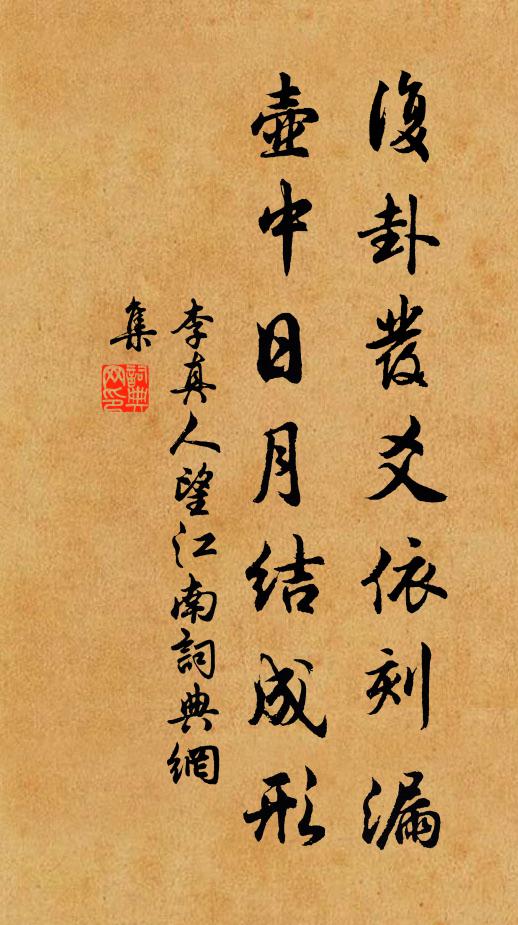 復卦發爻依刻漏
壺中日月結成形
李真人望江南詞典網
集
詞典網印